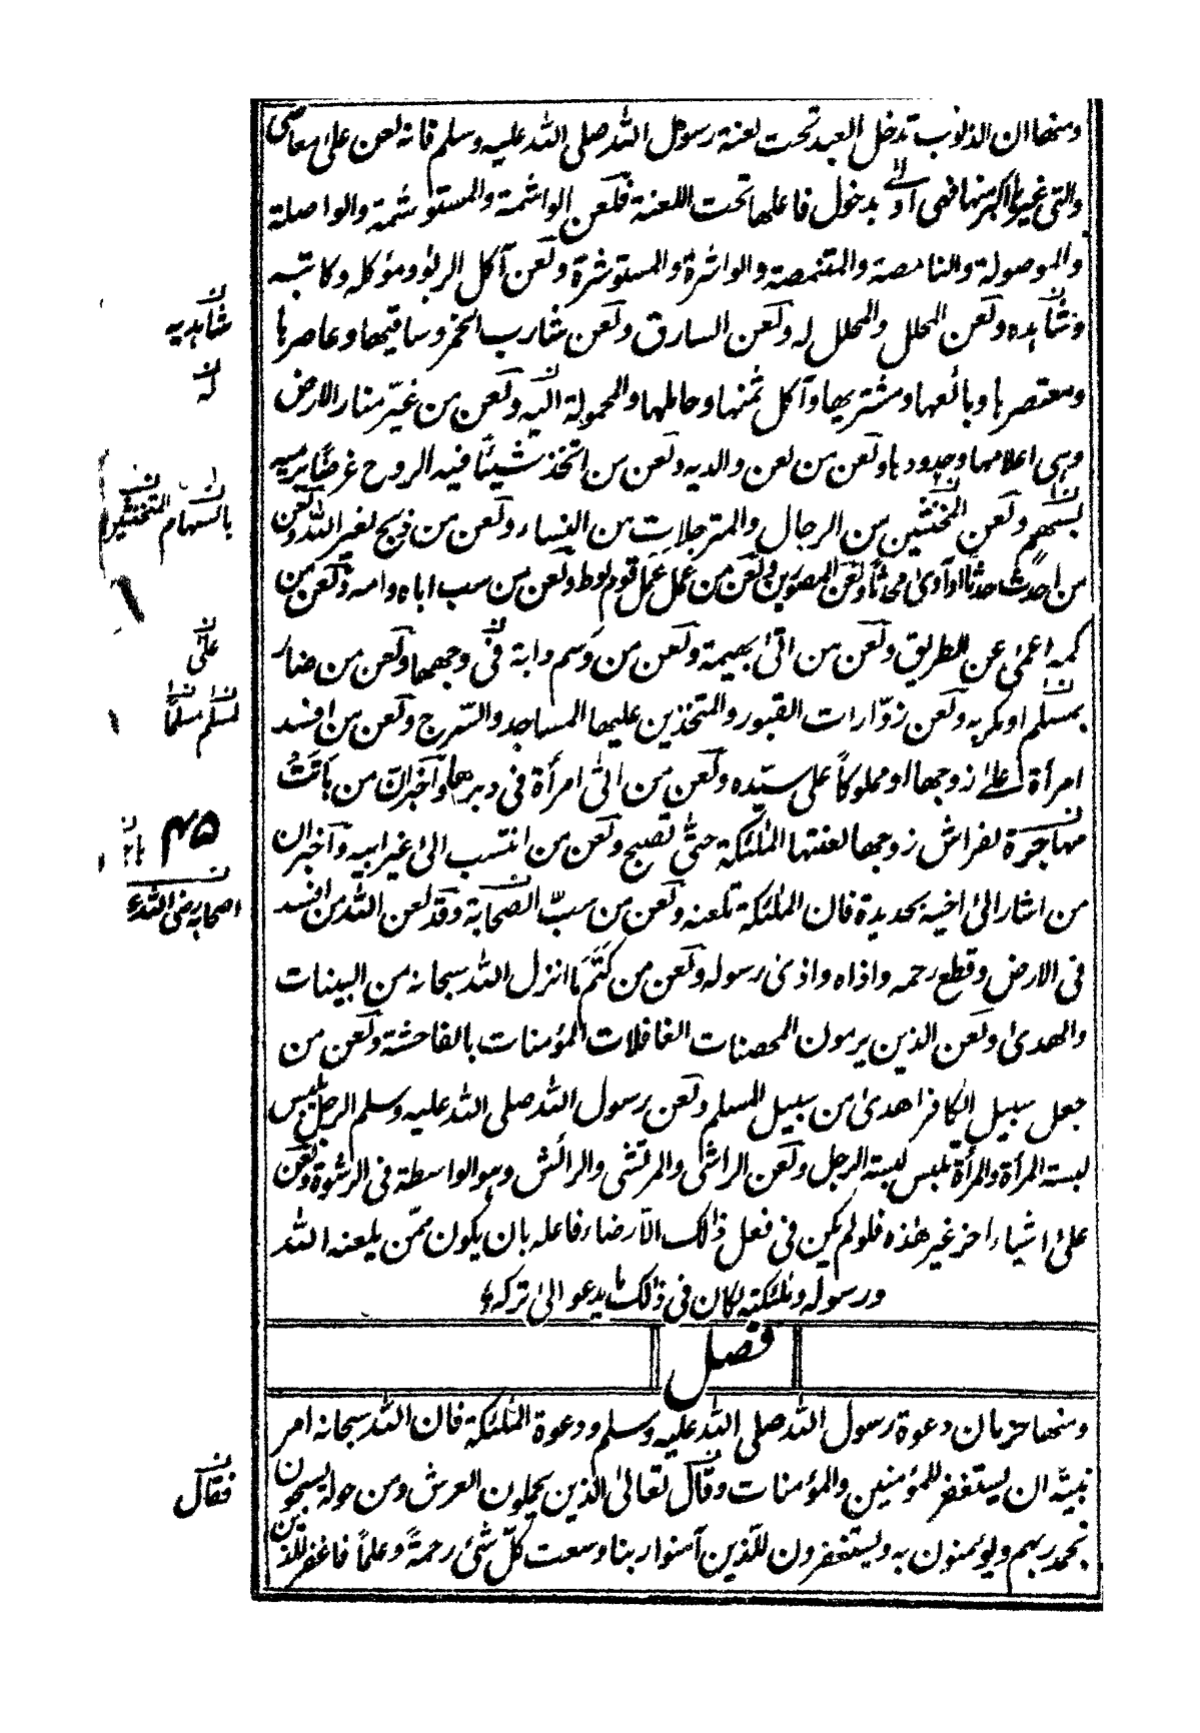 ومنها ان الذنوب تدخل العبد تحت لعنة رسول الله صلى الله عليه وسلم فانه لعن على معاصى
والتي غيرها اكبر منها فهي اولى بدخول فاعلها تحت اللعنة فلعن الواشمة والمستوشمة والواصلة
والموصولة والنامصة والمتنمصة والواشرة والمستوشرة ولعن آكل الربو ومؤكله وكاتبه
وشاهده ولعن المحلل والمحلل له ولعن السارق ولعن شارب الخمر وساقيها وعاصرها
ومعتصرها وبائعها ومشتريها وآكل ثمنها وحاملها والمحمولة اليه ولعن من غيّر منار الارض
وهى اعلامها وحدودها ولعن من لعن والديه ولعن من اتخذ شيئًا فيه الروح غرضًا يرميه
بسهم ولعن المخنثين من الرجال والمترجلات من النساء ولعن من ذبح لغير الله ولعن
من احدث حدثا او آوى محدثا ولعن المصورين ولعن من عمل عمل قوم لوط ولعن من سب اباه وامه ولعن من
كمه اعمى عن الطريق ولعن من اتى بهيمة ولعن من وسم دابة فى وجهها ولعن من ضار
بمسلم او مكر به ولعن زوّارات القبور والمتخذين عليها المساجد والسّرج ولعن من افسد
امرأة على زوجها او مملوكًا على سيّده ولعن من اتى امرأة فى دبرها وآخبر انّ من باتت
مهاجرة لفراش زوجها لعنتها الملٰئكة حتّى تصبح ولعن من انتسب الى غير ابيه وآخبر ان
من اشار الى اخيه بحديدة فان الملٰئكة تلعنه ولعن من سبّ الصحابة وقد لعن الله من افسد
فى الارض وقطع رحمه واذاه واذى رسوله ولعن من كتم ما انزل الله سبحانه من البينات
والهدى ولعن الذين يرمون المحصنات الغافلات المؤمنات بالفاحشة ولعن من
جعل سبيل الكافر اهدى من سبيل المسلم ولعن رسول الله صلى الله عليه وسلم الرجل يلبس
لبسة المرأة والمرأة تلبس لبسة الرجل ولعن الراشى والمرتشى والرائش وهو الواسطة فى الرشوة ولعن
على اشياء اخر غير هٰذه فلو لم يكن فى فعل ذٰلك الا رضاء فاعله بان يكون ممّن يلعنه الله
ورسوله وملٰئكته لكان فى ذٰلك ما يدعو الى تركه
فصل
ومنها حرمان دعوة رسول الله صلى الله عليه وسلم ودعوة الملٰئكة فان الله سبحانه امر
نبيّه ان يستغفر للمؤمنين والمؤمنات وقال تعالى الذين يحملون العرش ومن حوله يسبحون
بحمد ربهم ويؤمنون به ويستغفرون للّذين آمنوا ربنا وسعت كلّ شئ رحمةً وعلماً فاغفر للذين
شاهديه
له
بالسهام
المتخنثين
على
لمسلم مسلماً
٤٥
اصحابه رضى الله
فقال